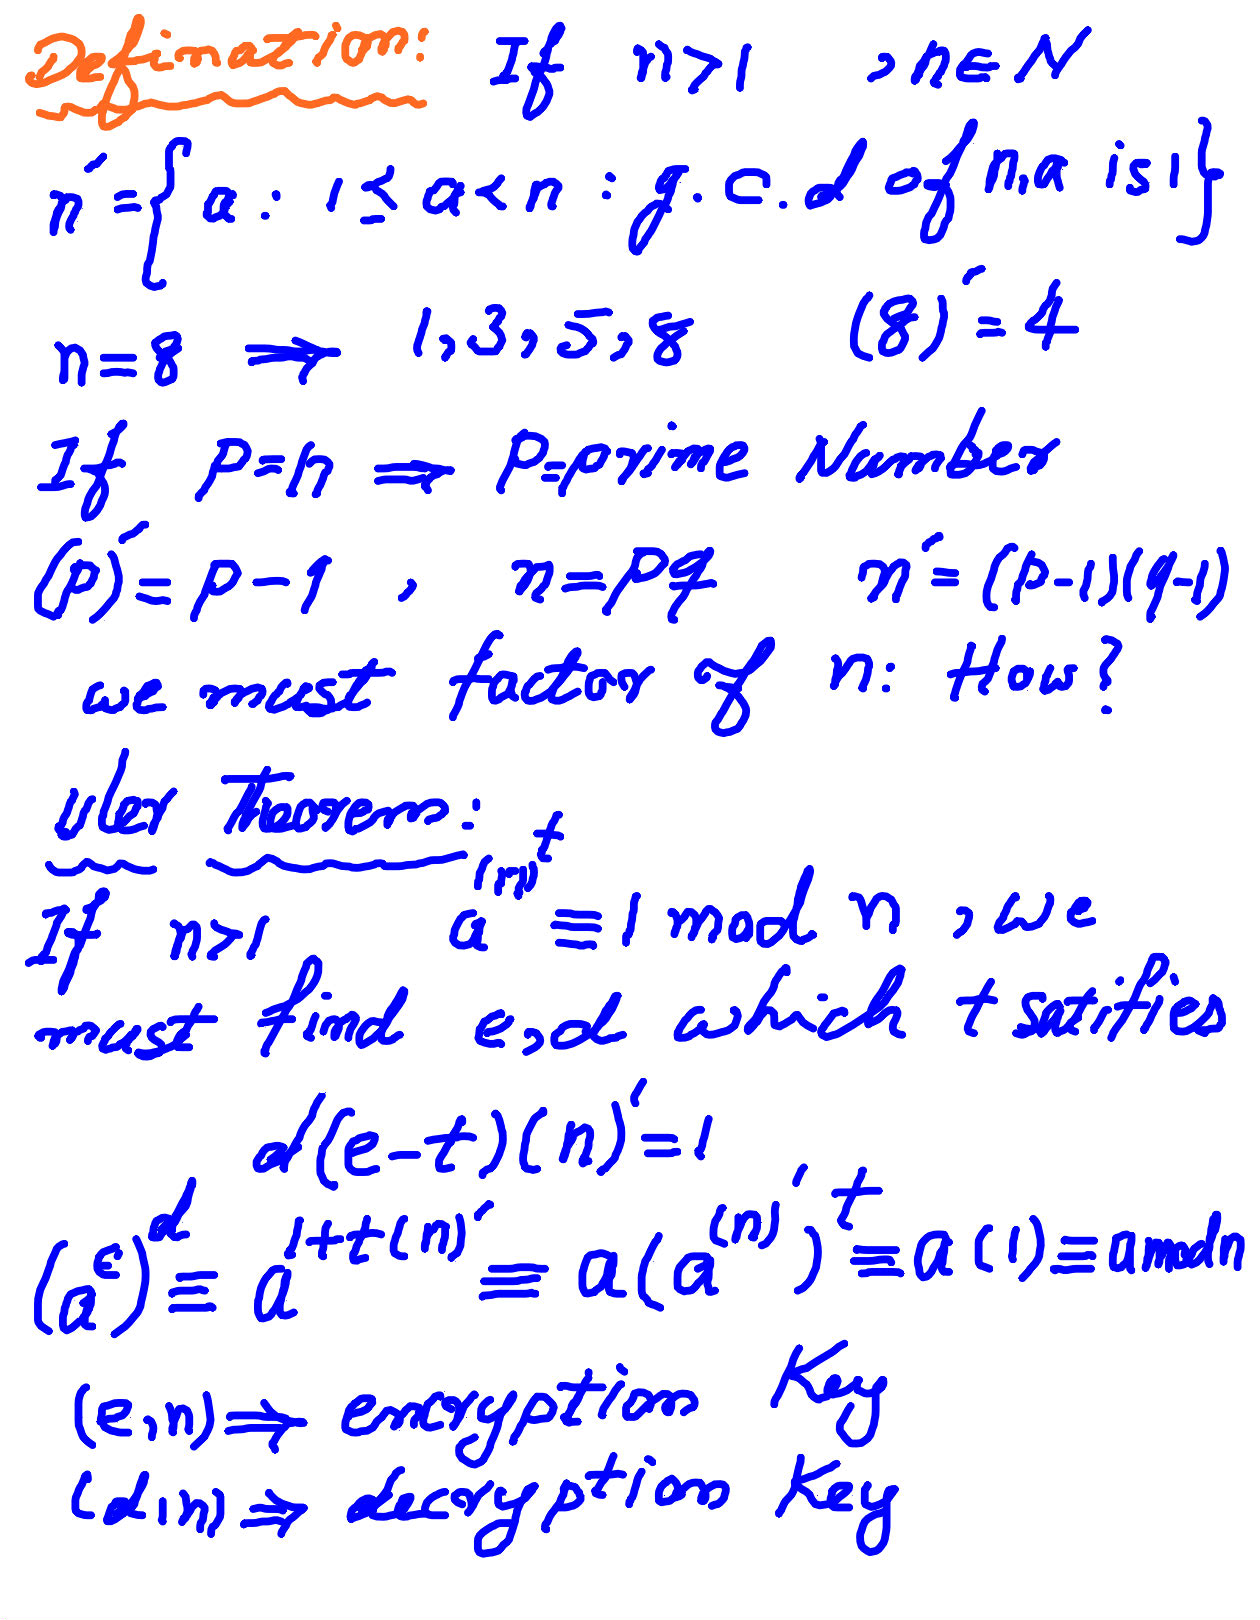 Defination: If n>1 , n∈N
n′={a: 1≤a<n : g.c.d of n,a is 1}
n=8 ⇒ 1,3,5,8 (8)′=4
If P=n ⇒ P=prime Number
(p)′=p-1 , n=pq n′=(p-1)(q-1)
we must factor of n: How?
Uler Theorem:
If n>1 a^(n)′^t ≡ 1 mod n , we
must find e,d which t satifies
d(e-t)(n)′=1
(a^e)^d ≡ a^1+t(n)′ ≡ a(a^(n)′)^t ≡ a(1) ≡ a mod n
(e,n) ⇒ encryption Key
(d,n) ⇒ decryption Key